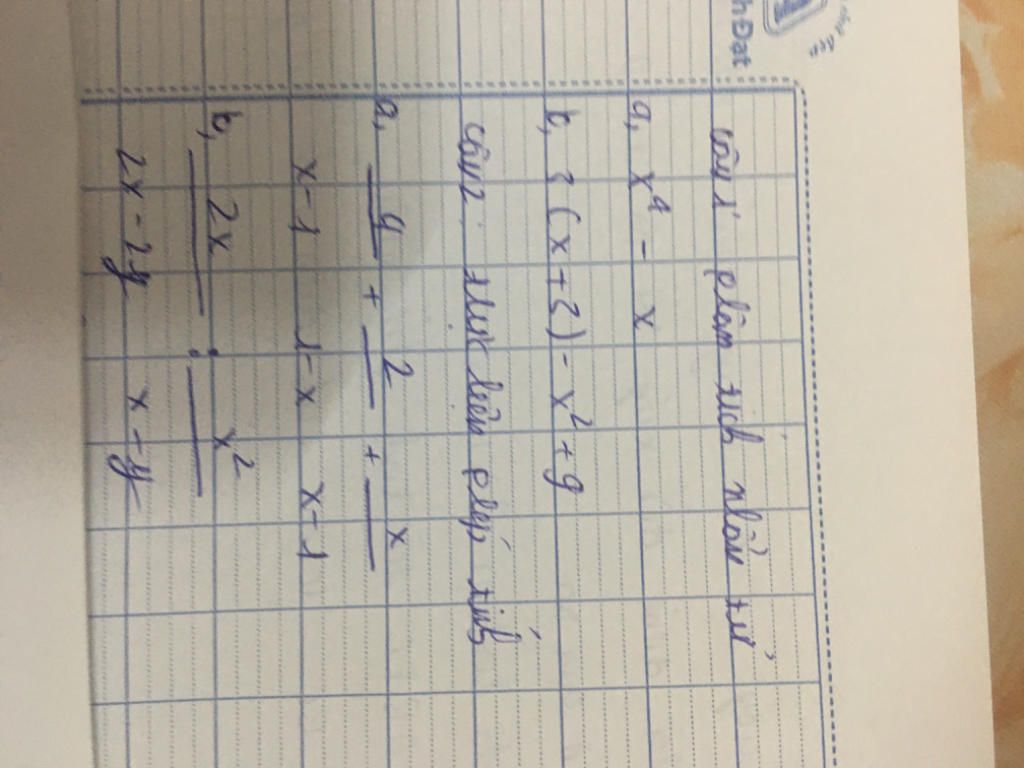 h Đạt
câu 1 phân tích nhân tử
a, x⁴ - x
b, 3(x+3) - x² + 9
câu 2: thực hiện phép tính
a, 4/(x-1) + 2/(1-x) + x/(x-1)
b, 2x/(2x-2y) : x²/(x-y)